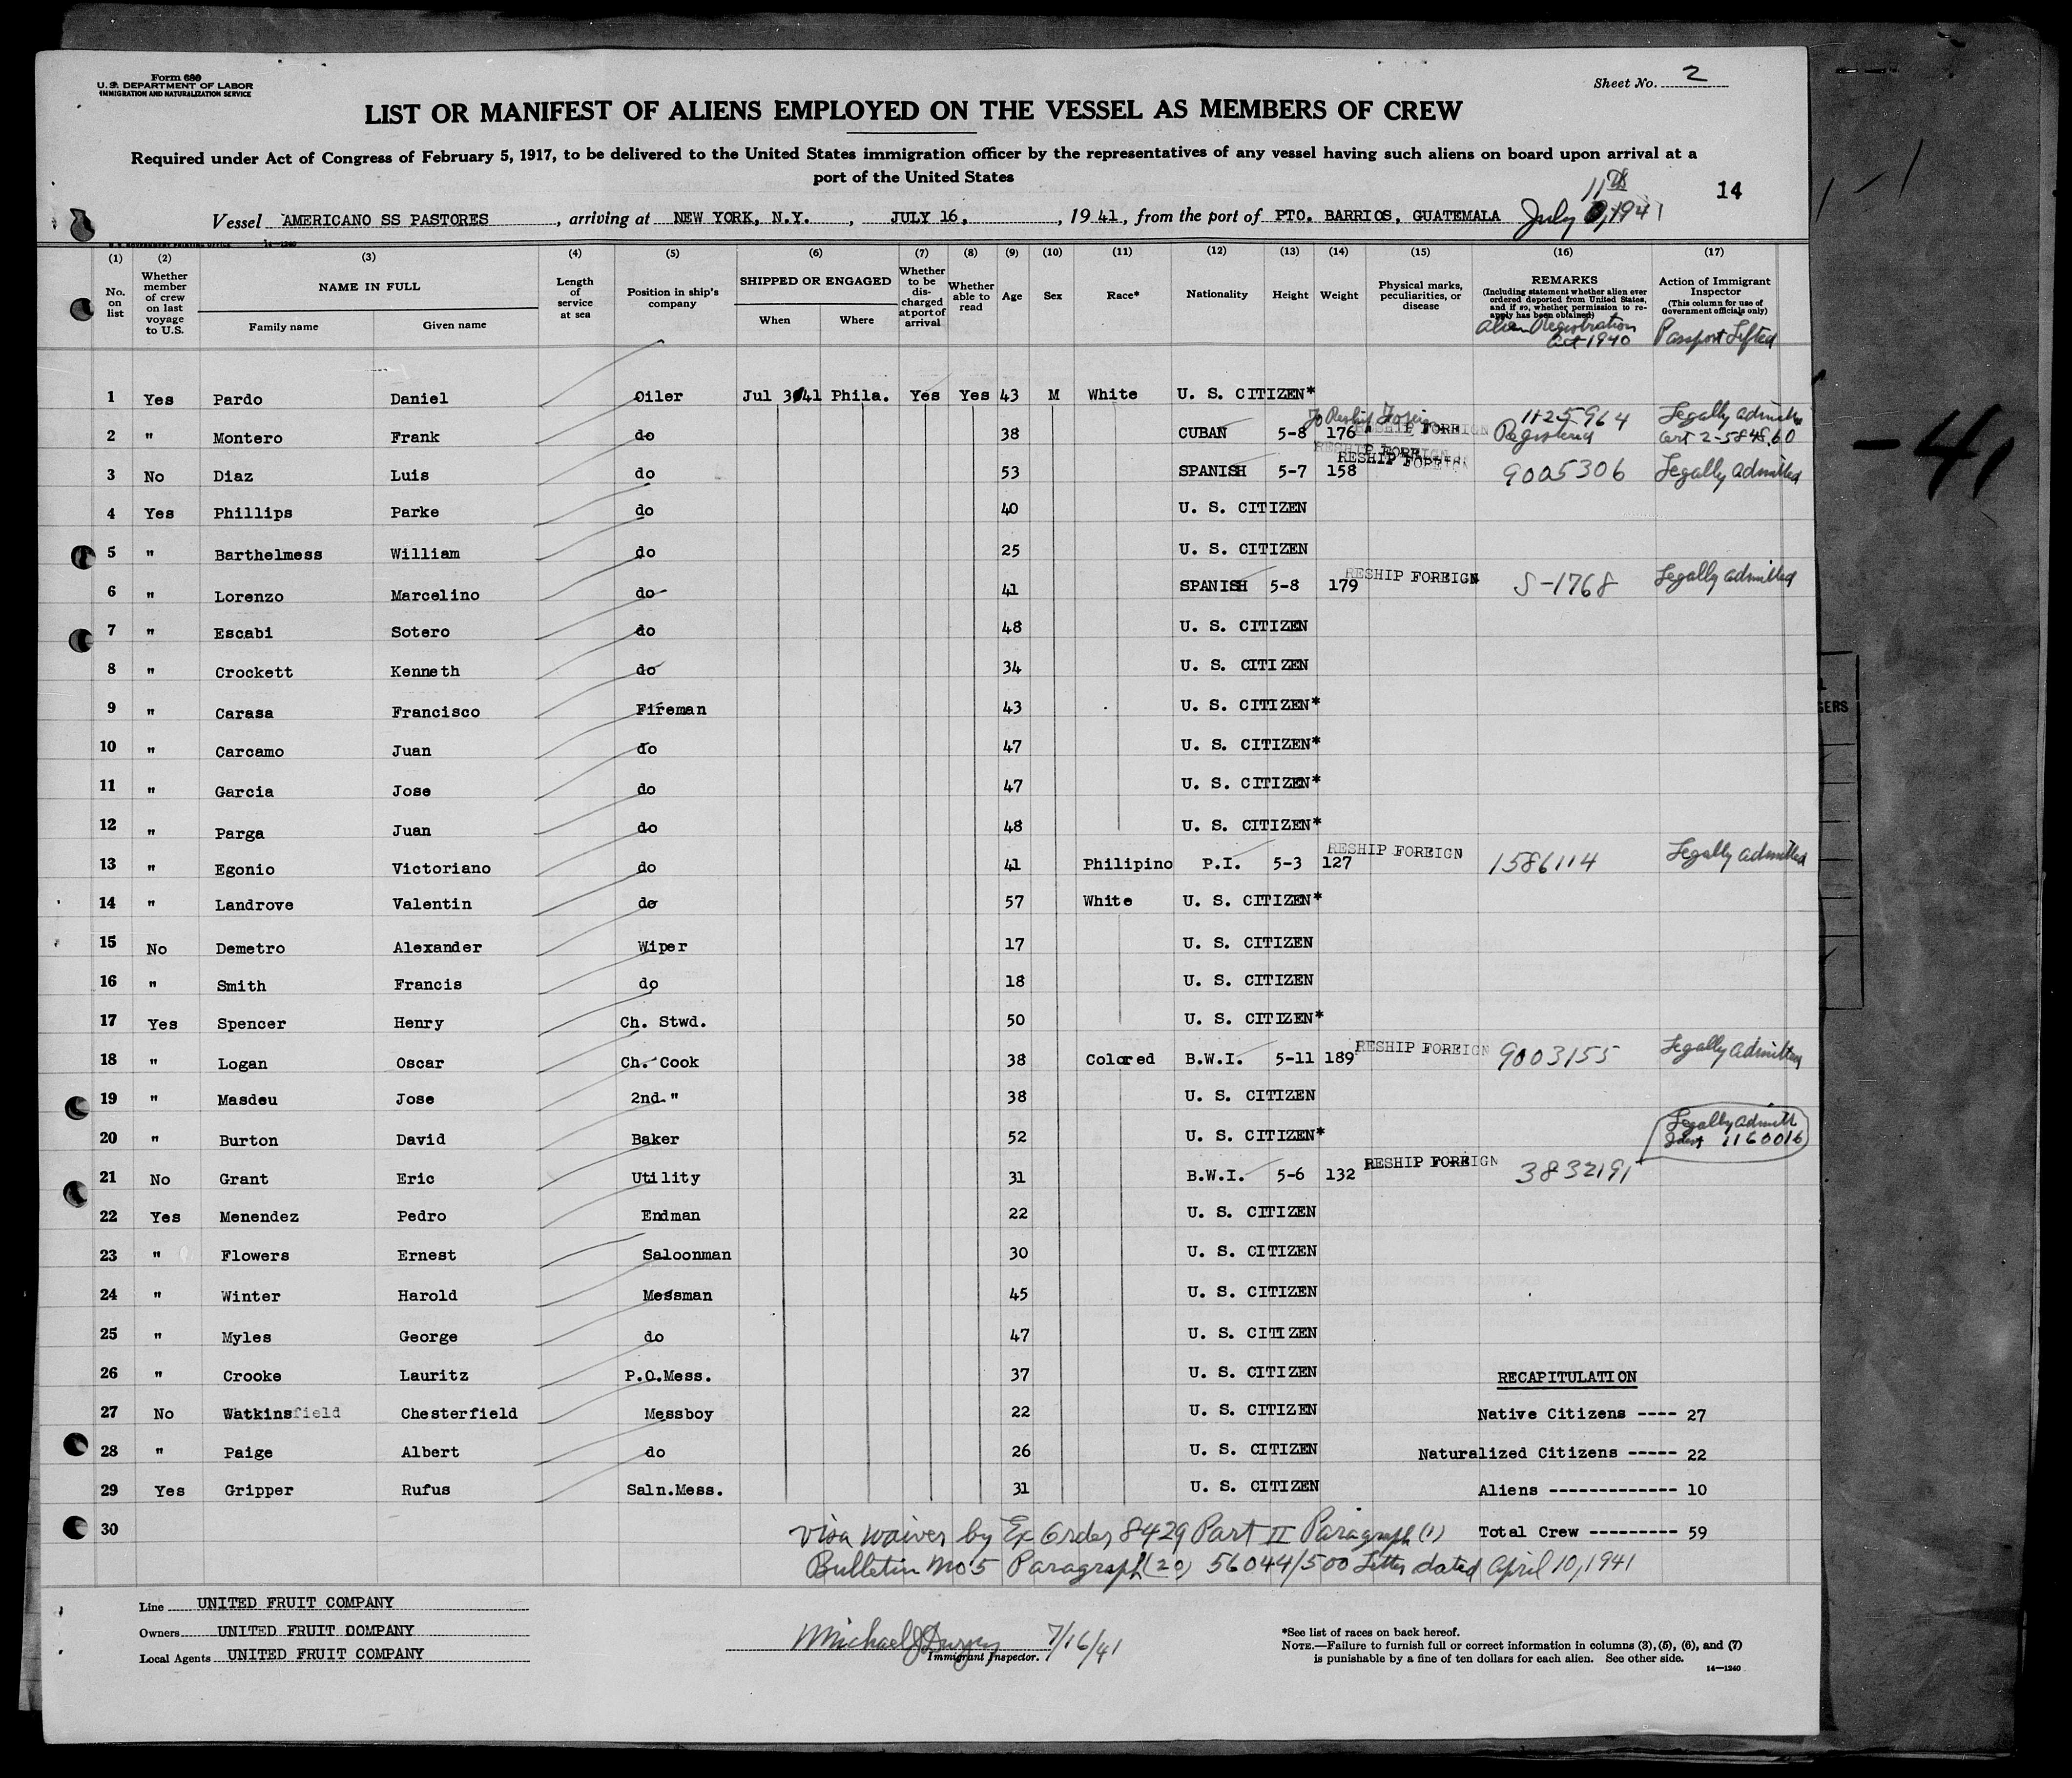 Form 680
U. S. DEPARTMENT OF LABOR
IMMIGRATION AND NATURALIZATION SERVICE
Sheet No. 2
LIST OR MANIFEST OF ALIENS EMPLOYED ON THE VESSEL AS MEMBERS OF CREW
Required under Act of Congress of February 5, 1917, to be delivered to the United States immigration officer by the representatives of any vessel having such aliens on board upon arrival at a
port of the United States
14
Vessel AMERICANO SS PASTORES, arriving at NEW YORK, N.Y., JULY 16, 1941, from the port of PTO. BARRIOS, GUATEMALA July 11th, 1941
(1) (2) (3) (4) (5) (6) (7) (8) (9) (10) (11) (12) (13) (14) (15) (16) (17)
No. on list
Whether member of crew on last voyage to U.S.
NAME IN FULL
Family name Given name
Length of service at sea
Position in ship's company
SHIPPED OR ENGAGED
When Where
Whether to be discharged at port of arrival
Whether able to read
Age
Sex
Race*
Nationality
Height
Weight
Physical marks, peculiarities, or disease
REMARKS
(Including statement whether alien ever ordered deported from United States, and if so, whether permission to reapply has been obtained)
Alien Registration Act 1940
Action of Immigrant Inspector
(This column for use of Government officials only)
Passport Lifted
1 Yes Pardo Daniel Oiler Jul 3 41 Phila. Yes Yes 43 M White U. S. CITIZEN*
2 " Montero Frank do 38 CUBAN 5-8 176 To Reship Foreign RESHIP FOREIGN 1125964 Registered Legally Admitted Cert 2-584860
3 No Diaz Luis do 53 SPANISH 5-7 158 RESHIP FOREIGN RESHIP FOREIGN 9005306 Legally Admitted
4 Yes Phillips Parke do 40 U. S. CITIZEN
5 " Barthelmess William do 25 U. S. CITIZEN
6 " Lorenzo Marcelino do 41 SPANISH 5-8 179 RESHIP FOREIGN S-1768 Legally admitted
7 " Escabi Sotero do 48 U. S. CITIZEN
8 " Crockett Kenneth do 34 U. S. CITIZEN
9 " Carasa Francisco Fireman 43 U. S. CITIZEN*
10 " Carcamo Juan do 47 U. S. CITIZEN*
11 " Garcia Jose do 47 U. S. CITIZEN*
12 " Parga Juan do 48 U. S. CITIZEN*
13 " Egonio Victoriano do 41 Philipino P.I. 5-3 127 RESHIP FOREIGN 1586114 Legally Admitted
14 " Landrove Valentin do 57 White U. S. CITIZEN*
15 No Demetro Alexander Wiper 17 U. S. CITIZEN
16 " Smith Francis do 18 U. S. CITIZEN
17 Yes Spencer Henry Ch. Stwd. 50 U. S. CITIZEN*
18 " Logan Oscar Ch. Cook 38 Colored B.W.I. 5-11 189 RESHIP FOREIGN 9003155 Legally Admitted
19 " Masdeu Jose 2nd " 38 U. S. CITIZEN
20 " Burton David Baker 52 U. S. CITIZEN*
21 No Grant Eric Utility 31 B.W.I. 5-6 132 RESHIP FOREIGN 3832191 Legally Admitt 1160016
22 Yes Menendez Pedro Endman 22 U. S. CITIZEN
23 " Flowers Ernest Saloonman 30 U. S. CITIZEN
24 " Winter Harold Messman 45 U. S. CITIZEN
25 " Myles George do 47 U. S. CITIZEN
26 " Crooke Lauritz P.O.Mess. 37 U. S. CITIZEN
RECAPITULATION
27 No Watkinsfield Chesterfield Messboy 22 U. S. CITIZEN
Native Citizens ---- 27
28 " Paige Albert do 26 U. S. CITIZEN
Naturalized Citizens ----- 22
29 Yes Gripper Rufus Saln.Mess. 31 U. S. CITIZEN
Aliens ------------- 10
30
Total Crew --------- 59
Visa waiver by Ex Order 8429 Part II Paragraph (1)
Bulletin No 5 Paragraph (20) 56044/500 Letter dated April 10, 1941
Line UNITED FRUIT COMPANY
Owners UNITED FRUIT DOMPANY
Local Agents UNITED FRUIT COMPANY
Michael J 7/16/41
Immigrant Inspector.
*See list of races on back hereof.
NOTE.—Failure to furnish full or correct information in columns (3), (5), (6), and (7)
is punishable by a fine of ten dollars for each alien. See other side.
14—1240
-41
GERS